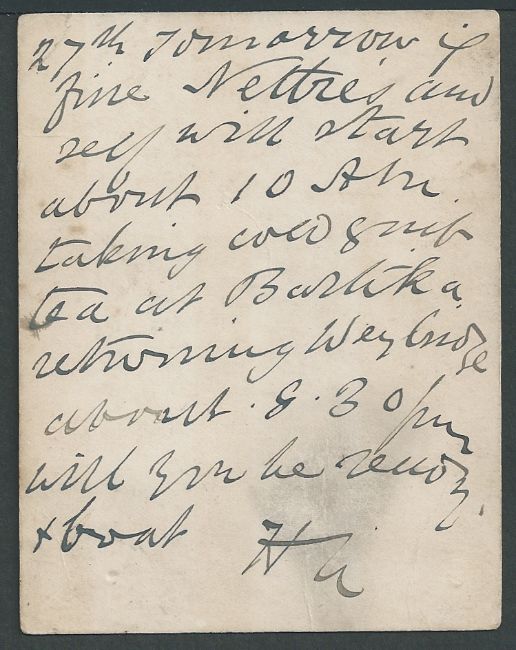 27th Tomorrow if
fine Nettie's and
self will start
about 10 AM.
taking cold
tea at
returning Weybridge
about . 8 . 30 pm
will you be ready
& boat